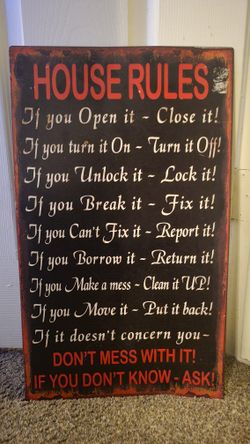 HOUSE RULES
If you Open it ~ Close it!
If you turn it On ~ Turn it Off!
If you Unlock it ~ Lock it!
If you Break it ~ Fix it!
If you Can't Fix it ~ Report it!
If you Borrow it ~ Return it!
If you Make a mess ~ Clean it UP!
If you Move it ~ Put it back!
If it doesn't concern you~
DON'T MESS WITH IT!
IF YOU DON'T KNOW ~ ASK!